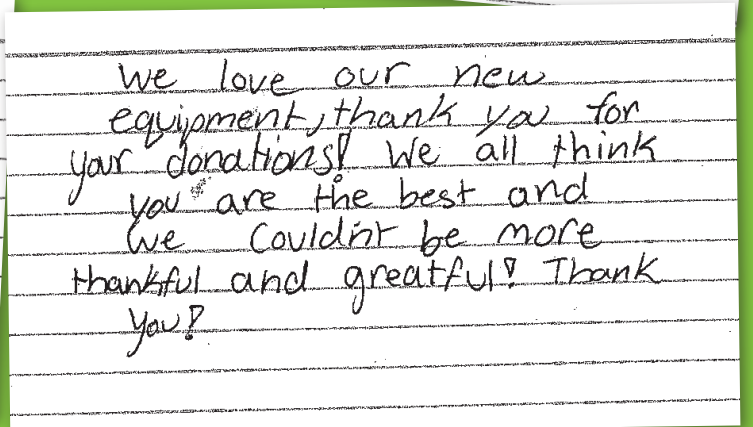 We love our new
equipment, thank you for
your donations! We all think
you are the best and
we couldn't be more
thankful and greatful! Thank
you!